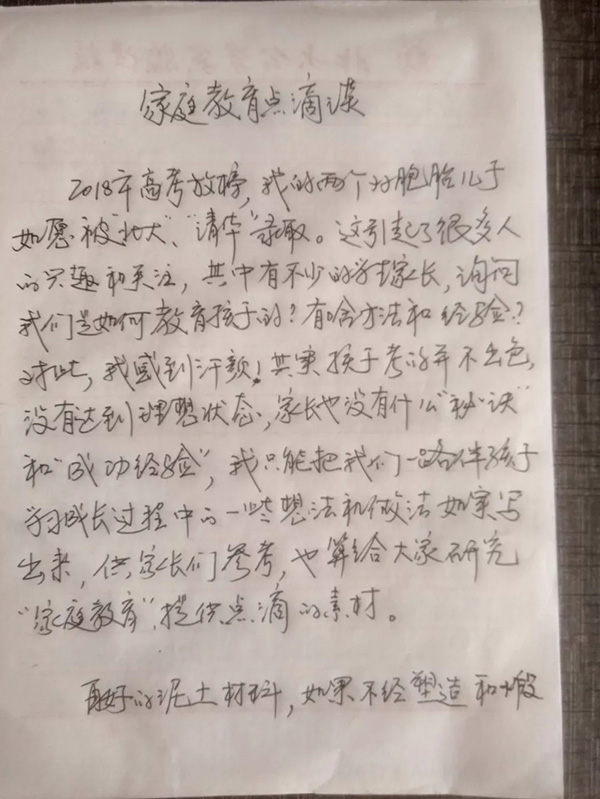 家庭教育点滴谈
2018年高考放榜，我的两个双胞胎儿子
如愿被"北大"、"清华"录取。这引起了很多人
的兴趣和关注，其中有不少的学生家长，询问
我们是如何教育孩子的？有啥方法和经验？
对此，我感到汗颜！其实孩子考的并不出色，
没有达到理想状态，家长也没有什么"秘诀"
和"成功经验"，我只能把我们一路伴孩子
学习成长过程中的一些想法和做法如实写
出来，供家长们参考，也算给大家研究
"家庭教育"提供点滴的素材。
再好的泥土材料，如果不经塑造和煅